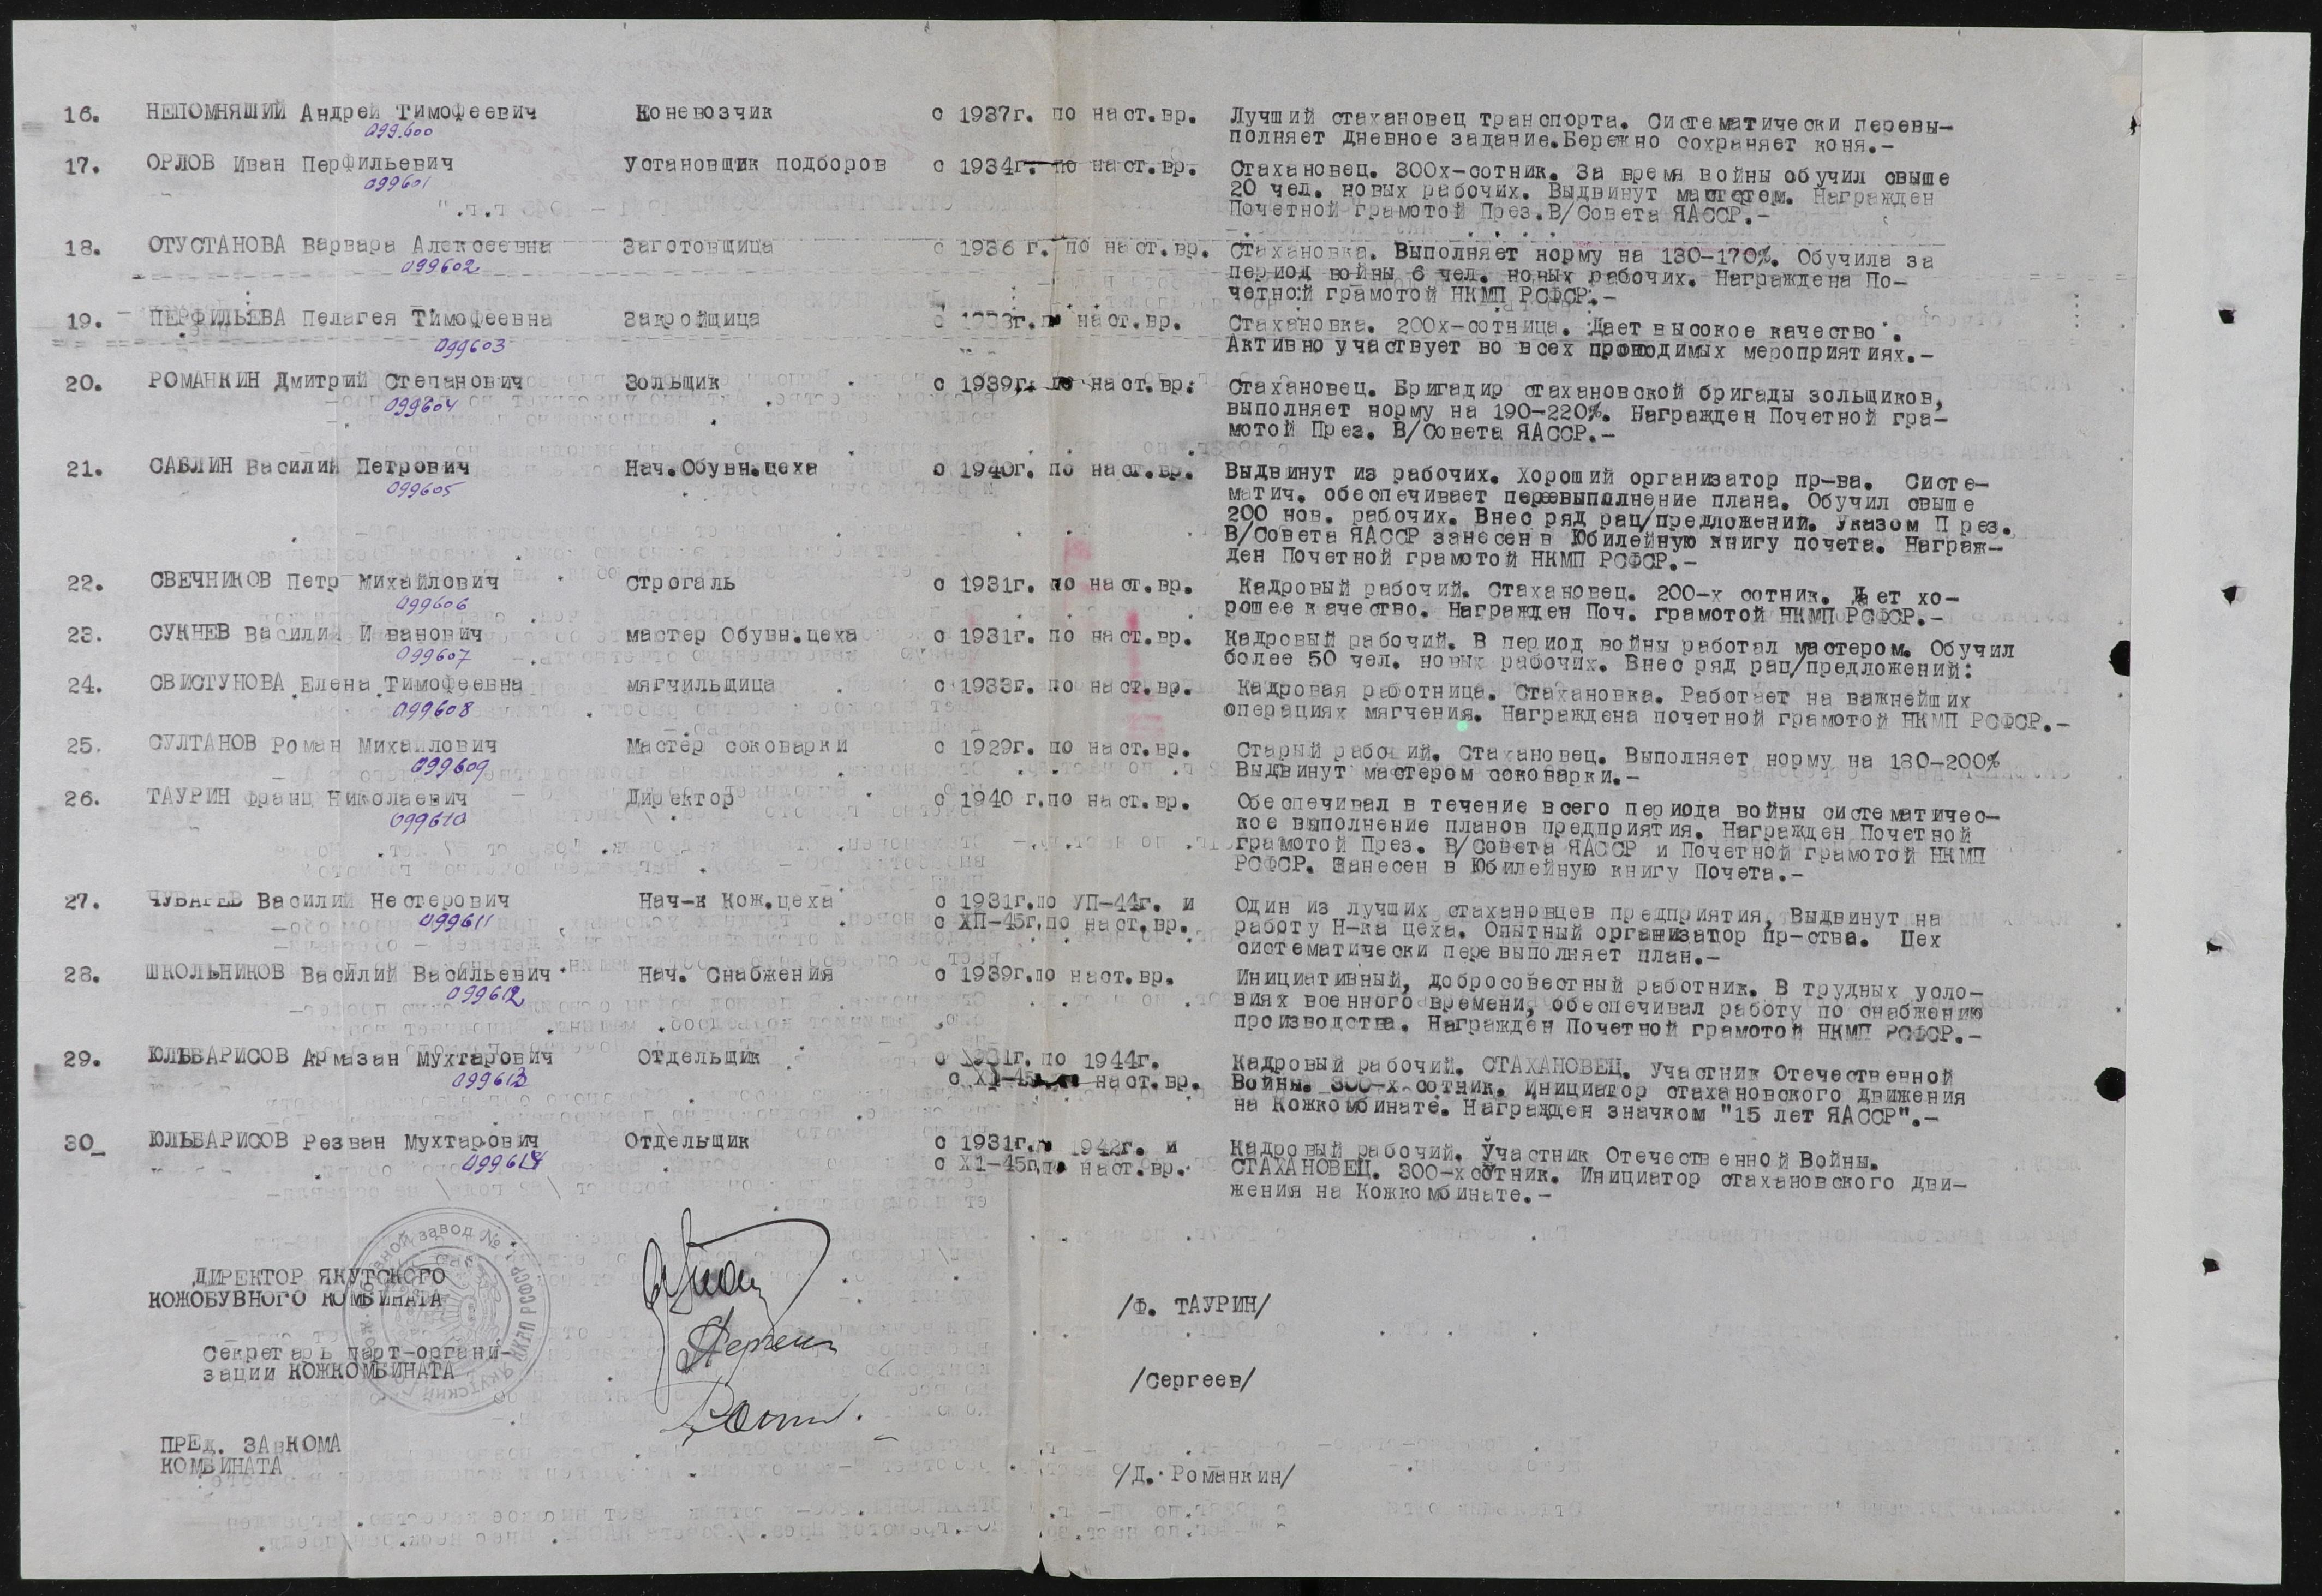 16. НЕПОМНЯШИЙ Андрей Тимофеевич Коневозчик с 1937г. по наст.вр. Лучший стахановец транспорта. Систематически перевы-
099.600
полняет дневное задание.Бережно сохраняет коня.-
17. ОРЛОВ Иван Перфильевич Установщик подборов с 1934г. по наст.вр. Стахановец. 300х-сотник. За время войны обучил свыше
099601
20 чел. новых рабочих. Выдвинут мастером. Награжден
Почетной грамотой През.В/Совета ЯАССР.-
18. ОТУСТАНОВА Варвара Алексеевна Заготовщица с 1936 г. по наст.вр. Стахановка. Выполняет норму на 130-170%. Обучила за
099602
период войны 6 чел. новых рабочих. Награждена По-
четной грамотой НКМП РСФСР.-
19. ПЕРФИЛЬЕВА Пелагея Тимофеевна Закройщица с 1938г.по наст.вр. Стахановка. 200х-сотница. Дает высокое качество.
099603
Активно участвует во всех проводимых мероприятиях.-
20. РОМАНКИН Дмитрий Степанович Зольщик с 1939г. по наст.вр. Стахановец. Бригадир стахановской бригады зольщиков,
099604
выполняет норму на 190-220%. Награжден Почетной гра-
мотой През. В/Совета ЯАССР.-
21. САБЛИН Василий Петрович Нач.Обувн.цеха с 1940г. по наст.вр. Выдвинут из рабочих. Хороший организатор пр-ва. Систе-
099605
матич. обеспечивает перевыполнение плана. Обучил свыше
200 нов. рабочих. Внес ряд рац/предложений. Указом През.
В/Совета ЯАССР занесен в Юбилейную книгу почета. Награж-
ден Почетной грамотой НКМП РСФСР.-
22. СВЕЧНИКОВ Петр Михайлович Строгаль с 1931г. по наст.вр. Кадровый рабочий. Стахановец. 200-х сотник. Дает хо-
099606
рошее качество. Награжден Поч. грамотой НКМП РСФСР.-
23. СУКНЕВ Василий Иванович мастер Обувн.цеха с 1931г. по наст.вр. Кадровый рабочий. В период войны работал мастером. Обучил
099607
более 50 чел. новых рабочих. Внес ряд рац/предложений:
24. СВИСТУНОВА Елена Тимофеевна мягчильщица с 1933г. по наст.вр. Кадровая работница. Стахановка. Работает на важнейших
099608
операциях мягчения. Награждена почетной грамотой НКМП РСФСР.-
25. СУЛТАНОВ Роман Михайлович Мастер соковарки с 1929г. по наст.вр. Старый рабочий. Стахановец. Выполняет норму на 180-200%
099609
Выдвинут мастером соковарки.-
26. ТАУРИН Франц Николаевич Директор с 1940 г.по наст.вр. Обеспечивал в течение всего периода войны систематичес-
099610
кое выполнение планов предприятия. Награжден Почетной
грамотой През. В/Совета ЯАССР и Почетной грамотой НКМП
РСФСР. Занесен в Юбилейную книгу Почета.-
27. ЧУВАРЕВ Василий Нестерович Нач-к Кож.цеха с 1931г.по УП-44г. и Один из лучших стахановцев предприятия, Выдвинут на
099611 с ХП-45г.по наст.вр. работу Н-ка цеха. Опытный организатор пр-ства. Цех
систематически перевыполняет план.-
28. ШКОЛЬНИКОВ Василий Васильевич Нач. Снабжения с 1939г.по наст.вр. Инициативный, добросовестный работник. В трудных усло-
099612
виях военного времени, обеспечивал работу по снабжению
производства. Награжден Почетной грамотой НКМП РСФСР.-
29. ЮЛЬБАРИСОВ Армазан Мухтарович Отдельщик с 1931г. по 1944г. Кадровый рабочий. СТАХАНОВЕЦ. Участник Отечественной
099613 с Х1-45 по наст.вр. Войны. 300-х сотник. Инициатор стахановского движения
на Кожкомбинате. Награжден значком "15 лет ЯАССР".-
30_ ЮЛЬБАРИСОВ Резван Мухтарович Отдельщик с 1931г.по 1942г. и Кадровый рабочий. Участник Отечественной Войны.
099614 с Х1-45г.по наст.вр. СТАХАНОВЕЦ. 300-хсотник. Инициатор стахановского дви-
жения на Кожкомбинате.-
ДИРЕКТОР ЯКУТСКОГО
КОЖОБУВНОГО КОМБИНАТА /Ф. ТАУРИН/
Секретарь парт-органи-
зации КОЖКОМБИНАТА /Сергеев/
ПРЕД. ЗАВКОМА
КОМБИНАТА /Д. Романкин/